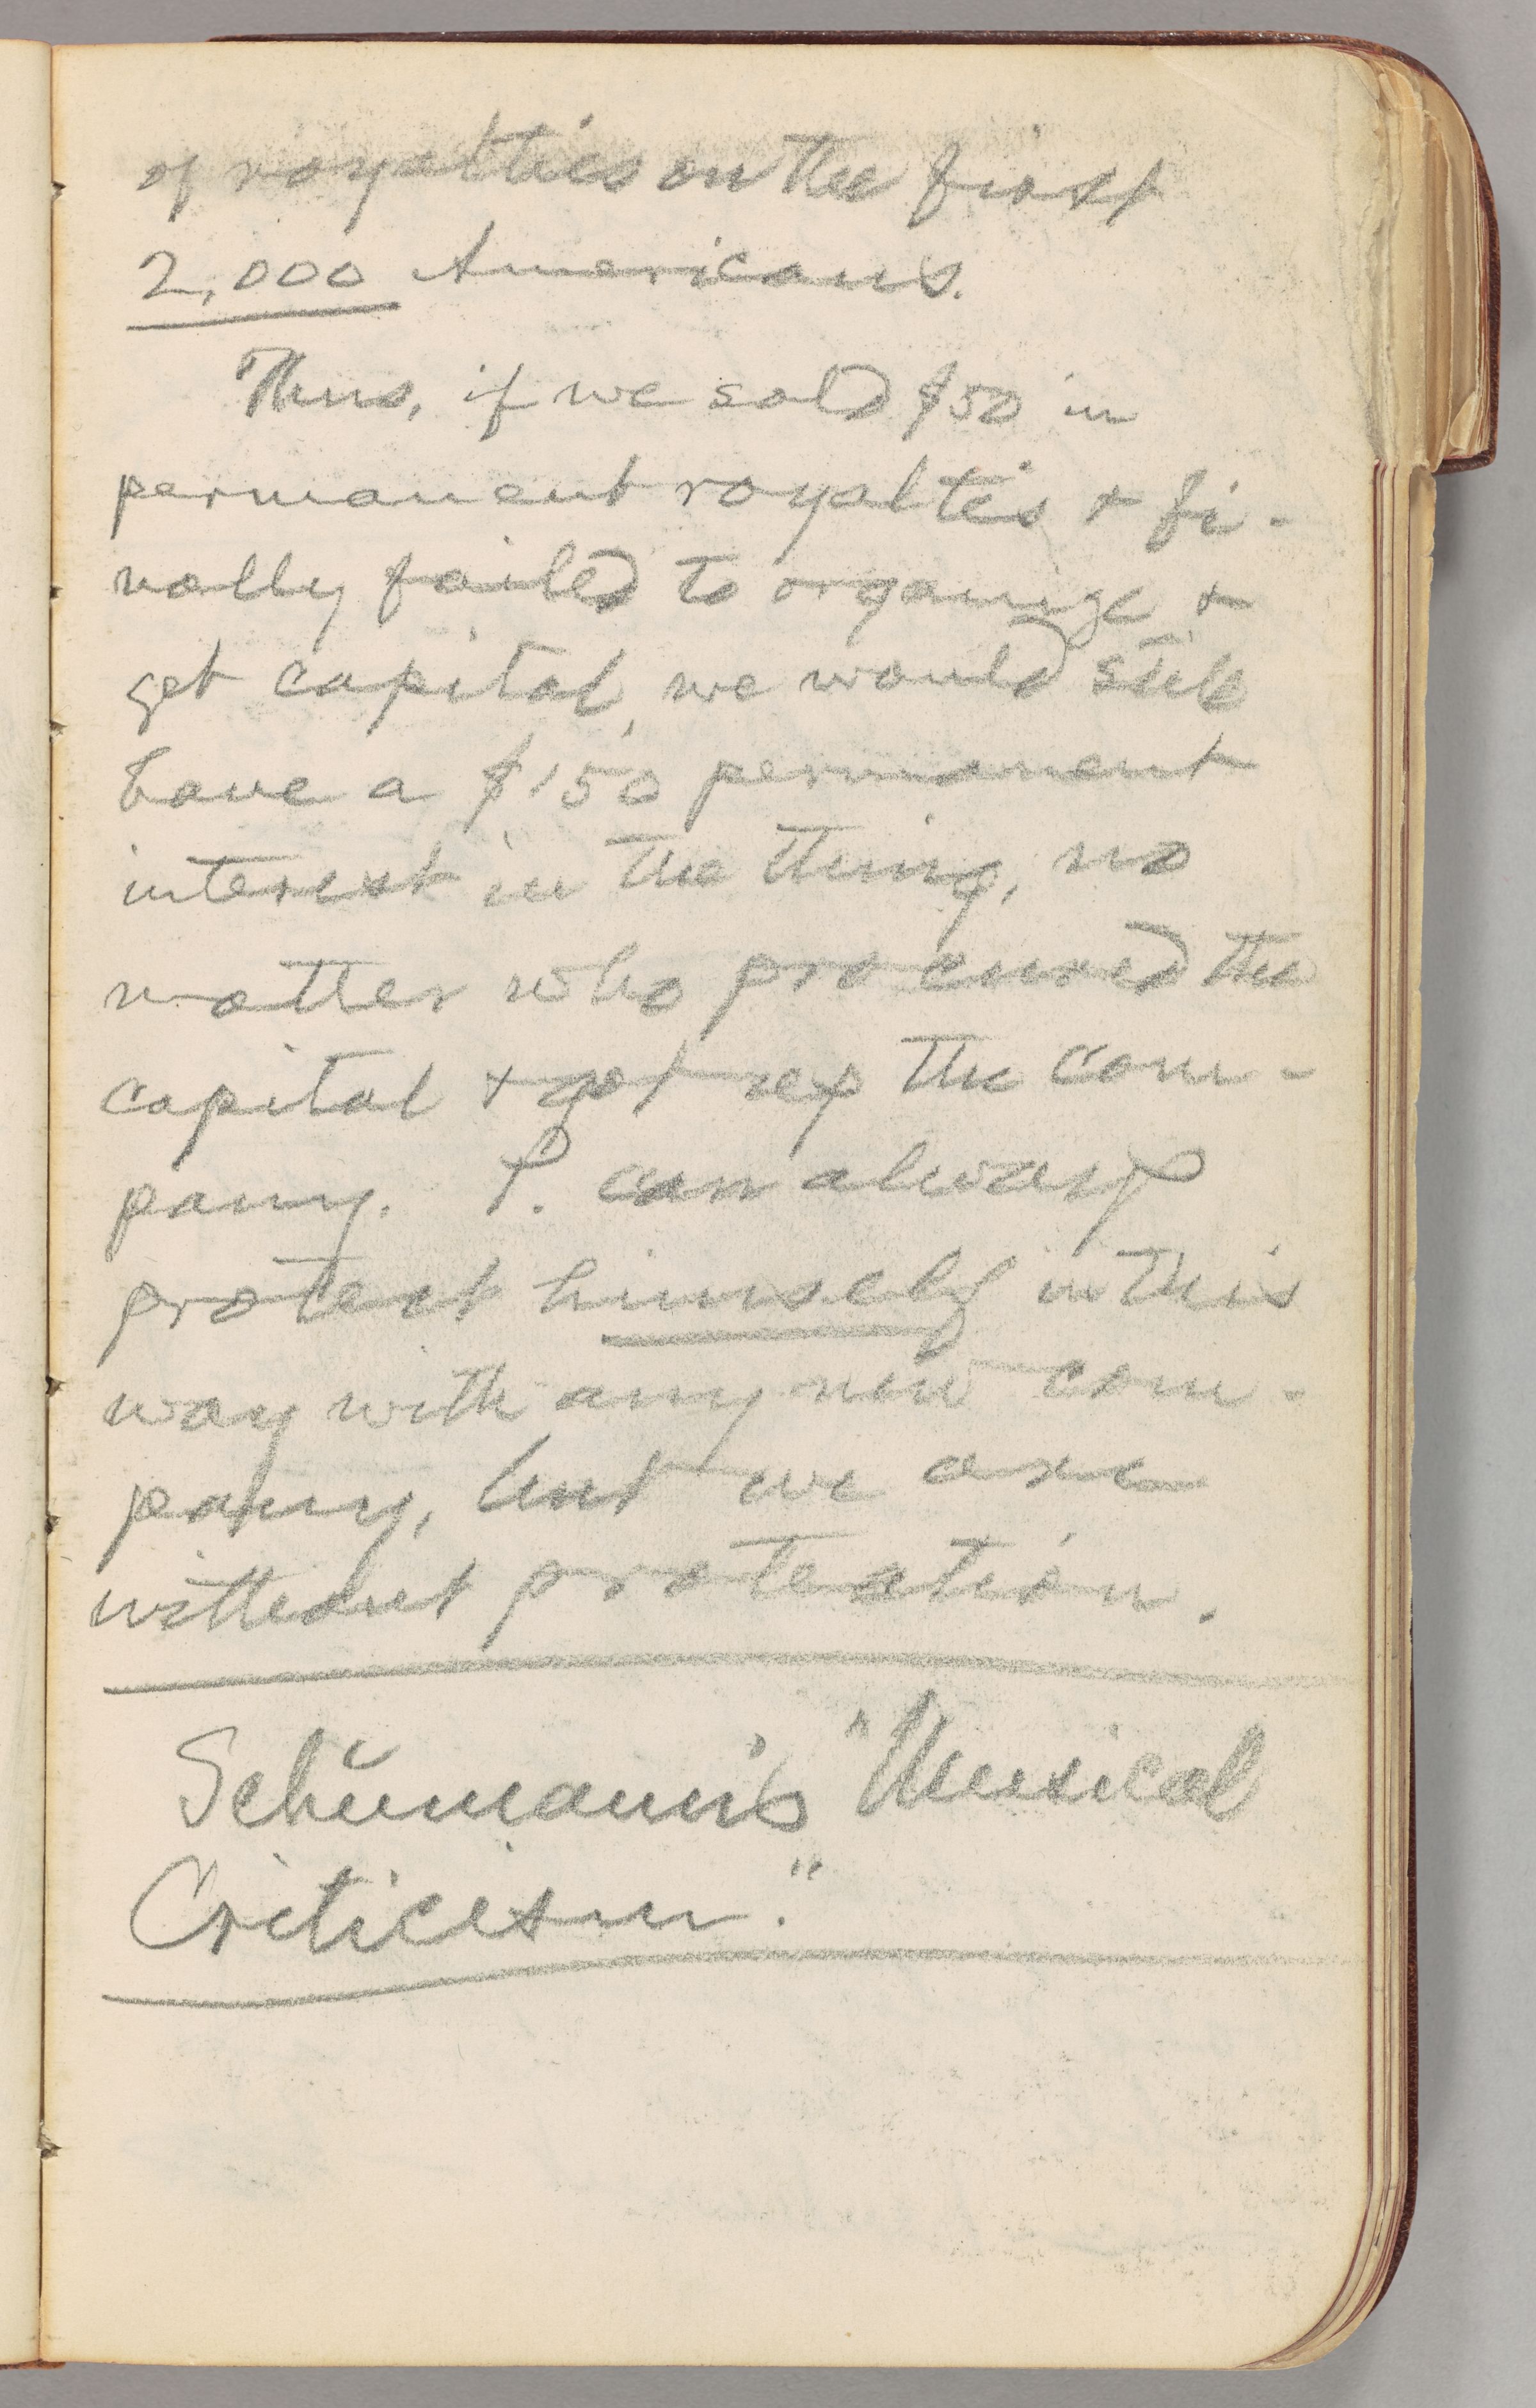 of royalties on the first
2,000 Americans.
Thus, if we sold $50 in
permanent royalties + fi-
nally failed to organize +
get capital, we would still
have a $150 permanent
interest in the thing, no
matter who procured the
capital + got up the com-
pany. P. can always
protect himself in this
way with any new com-
pany, but we are
without protection.
Schümann's "Musical
Criticism."